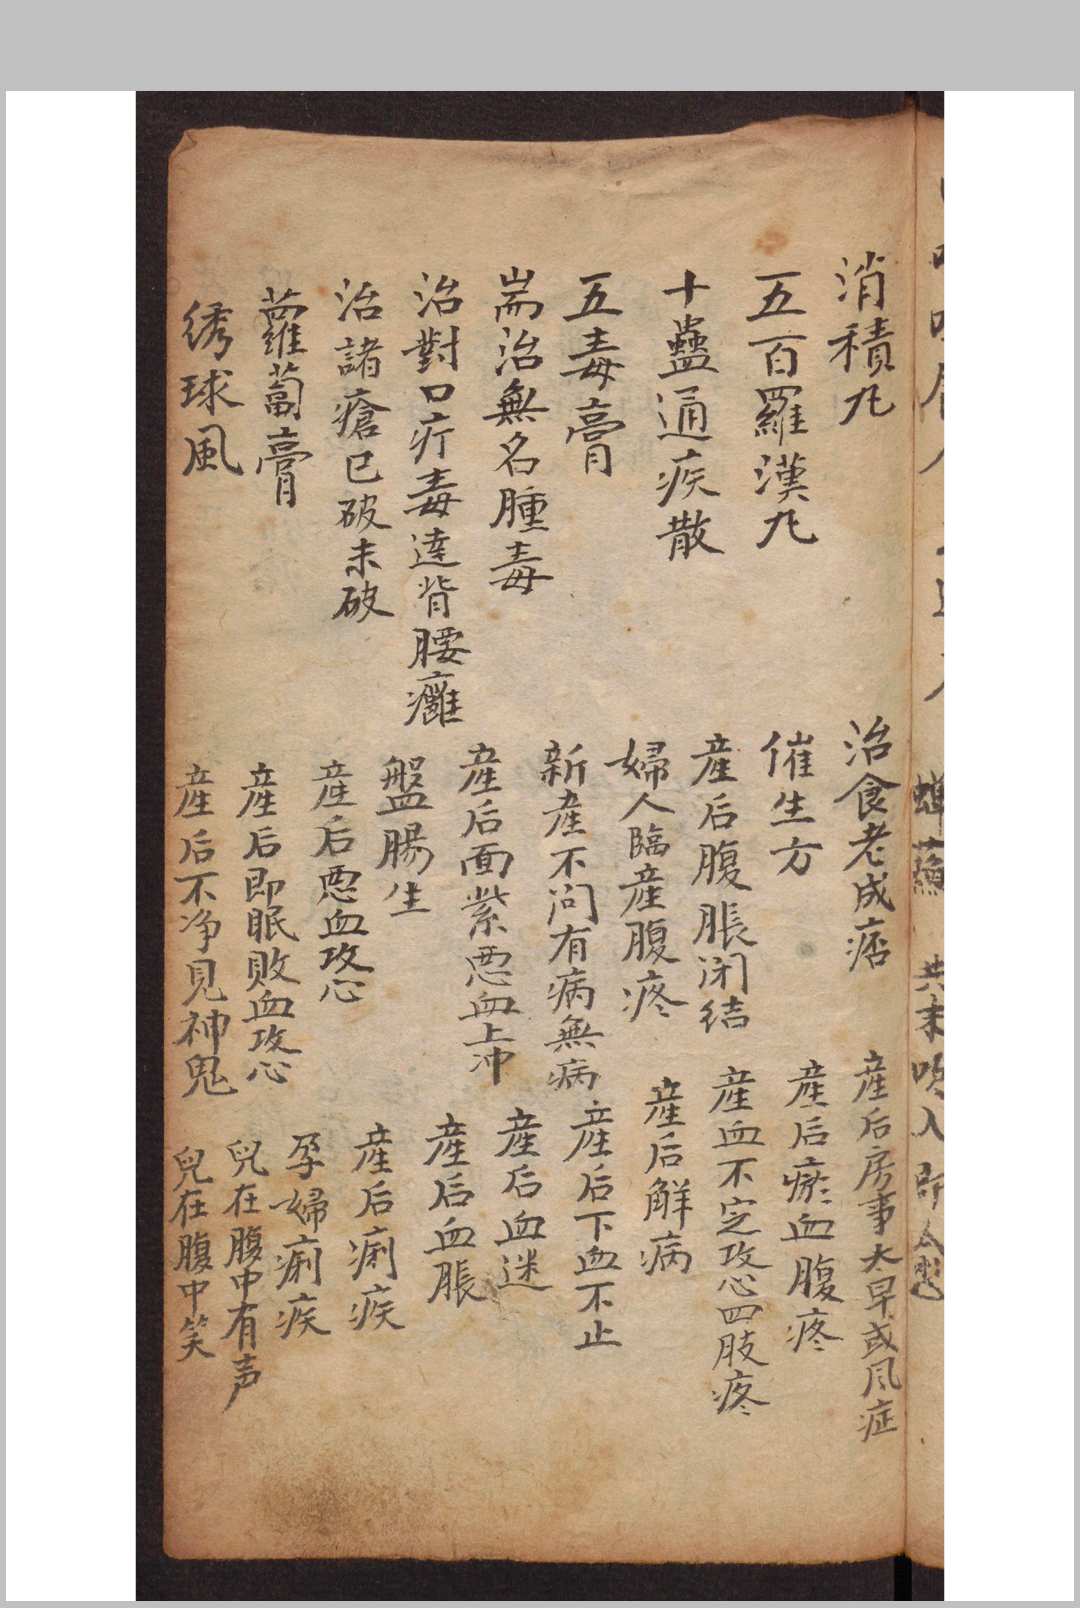 蟬蘓 共末吹入即愈
消積九
五百羅漢九
十蠱通疾散
五毒膏
耑治無名腫毒
治對口疔毒達背腰癰
治諸瘡已破未破
蘿蔔膏
绣球風
治食老成痞
催生方
産后腹脹闭结
婦人臨産腹疼
新産不问有病無病
産后面紫悪血上冲
盤腸生
産后悪血攻心
産后即眠败血攻心
産后不净見神鬼
産后房事太早或风症
産后瘀血腹疼
産血不定攻心四肢疼
産后觧病
産后下血不止
産后血迷
産后血脹
産后痢疾
孕婦痢疾
兒在腹中有声
兒在腹中笑